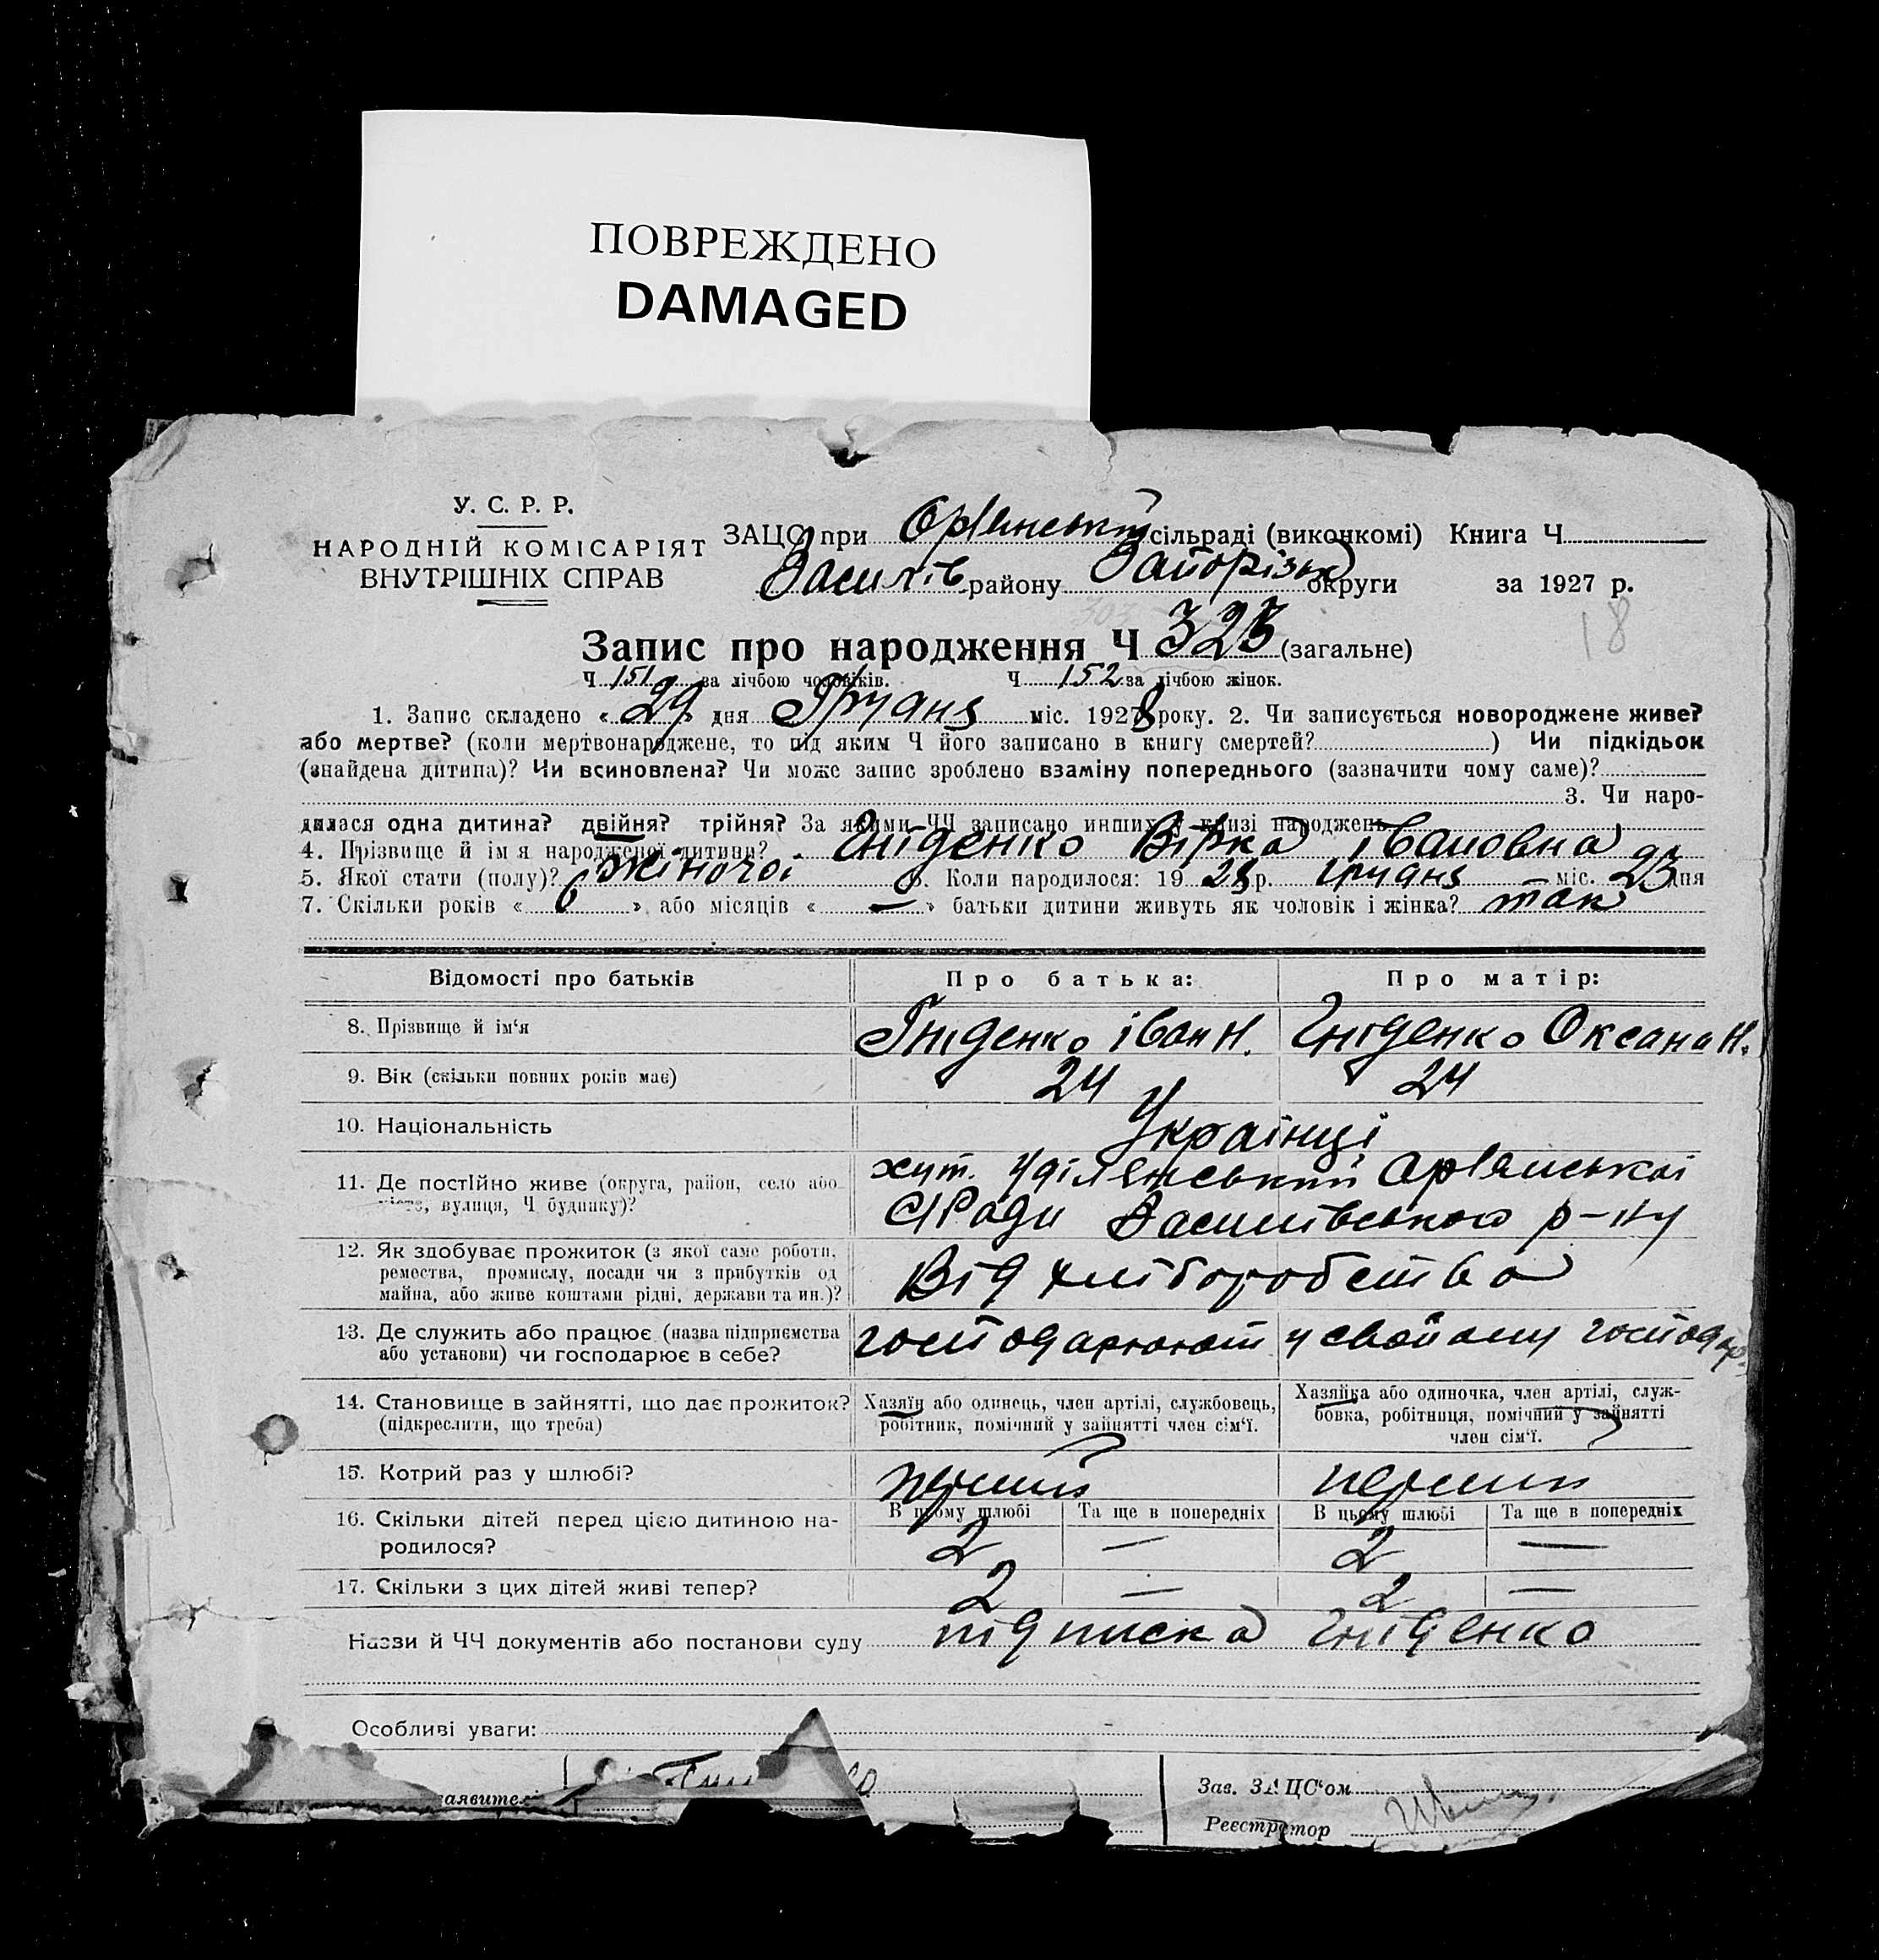 ПОВРЕЖДЕНО
DAMAGED
У. С. Р. Р.
НАРОДНІЙ КОМІСАРІЯТ
ВНУТРІШНІХ СПРАВ
ЗАЦС при Орʼянській сільраді (виконкомі) Книга Ч
Василів району Запорізьк округи за 1927 р.
18
Запис про народження Ч 323 (загальне)
Ч 151 за лічбою чоловіків. Ч 152 за лічбою жінок.
1. Запис складено « 29 » дня Грудня міс. 1928 року. 2. Чи записується новороджене живе?
або мертве? (коли мертвонароджене, то під яким Ч його записано в книгу смертей? ) Чи підкідьок
(знайдена дитина)? Чи всиновлена? Чи може запис зроблено взаміну попереднього (зазначити чому саме)?
3. Чи наро-
дилася одна дитина? двійня? трійня? За якими ЧЧ записано инших у книзі народжень
4. Прізвище й імя народженої дитини? Гніденко Вірка Івановна
5. Якої стати (полу)? жіночої 6. Коли народилося: 19 28 р. грудня міс. 23 дня
7. Скільки років « 6 » або місяців « — » батьки дитини живуть як чоловік і жінка? так
Відомості про батьків Про батька: Про матір:
8. Прізвище й імʻя Гніденко Іван Н. Гніденко Оксана Н.
9. Вік (скільки повних років має) 24 24
10. Національність Українці
11. Де постійно живе (округа, район, село або хут. Уділенський Орʼянської
місто, вулиця, Ч будинку)? С/Ради Василівського р-ну
12. Як здобуває прожиток (з якої саме роботи,
ремества, промислу, посади чи з прибутків од
майна, або живе коштами рідні, держави та ин.)? Від хліборобства
13. Де служить або працює (назва підприємства господарюють у свойому господар.
або установи) чи господарює в себе?
14. Становище в зайнятті, що дає прожиток? Хазяїн або одинець, член артілі, службовець, Хазяйка або одиночка, член артілі, служ-
(підкреслити, що треба) робітник, помічний у зайнятті член сімʻї. бовка, робітниця, помічний у зайнятті
член сімʻї.
15. Котрий раз у шлюбі? перший перший
В цьому шлюбі Та ще в попередніх В цьому шлюбі Та ще в попередніх
16. Скільки дітей перед цією дитиною на-
родилося? 2 — 2 —
17. Скільки з цих дітей живі тепер? 2 — 2 —
Назви й ЧЧ документів або постанови суду підписка Гніденко
Особливі уваги:
Зав. ЗАЦСʻом
Реєстратор